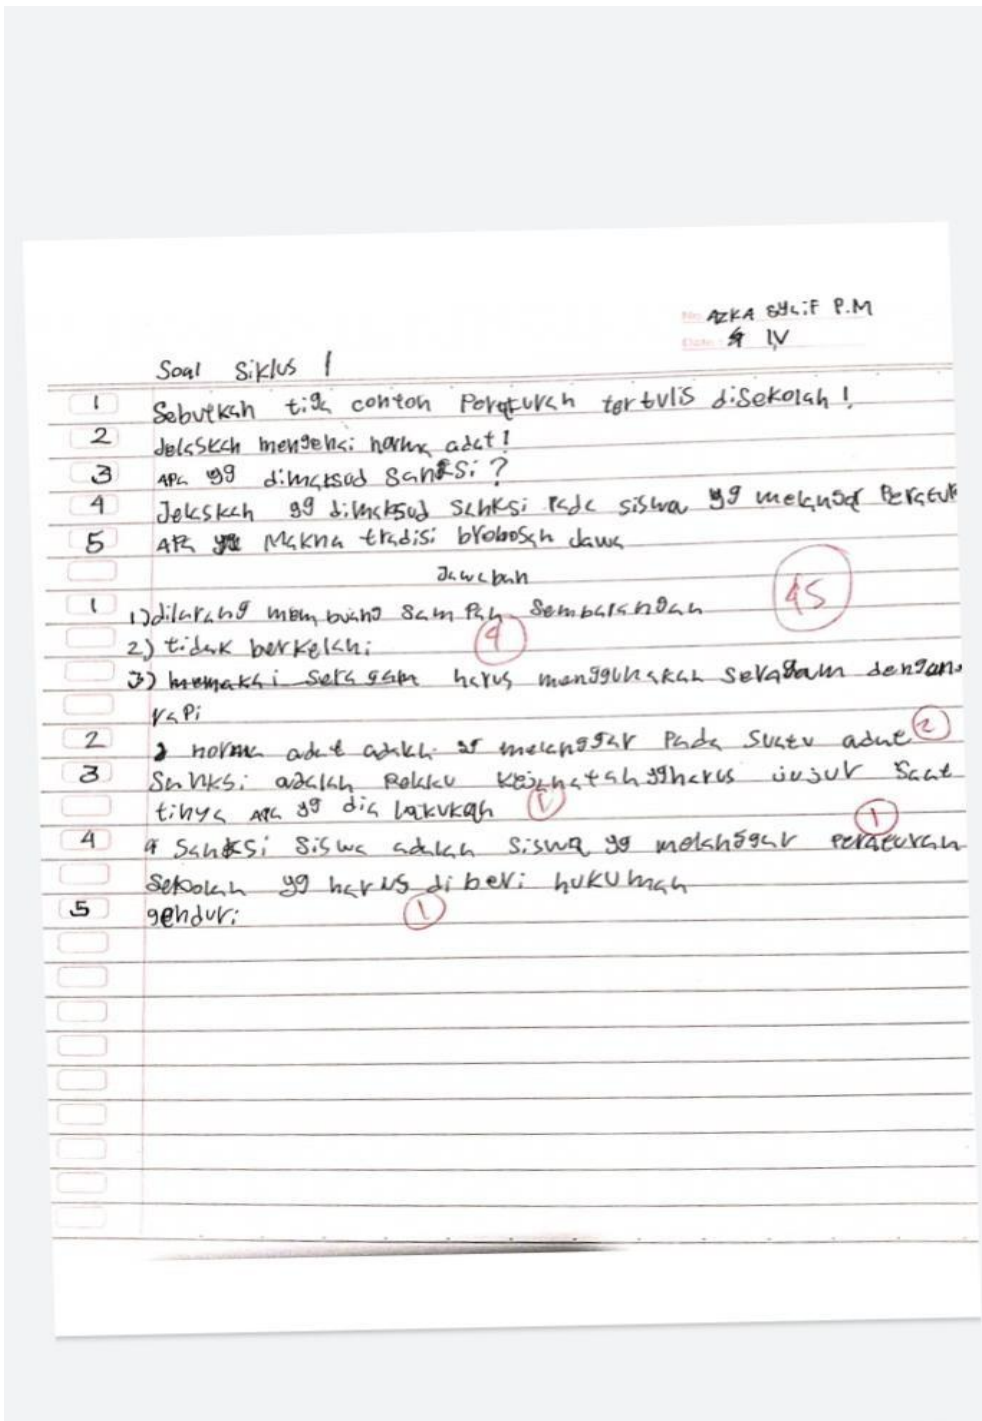 No. AZKA SYLiF P.M
Date: IV
Soal Siklus 1
1 Sebutkan tiga conton Peraturan tertulis diSekolah !
2 JelasKan mengenai norma adat !
3 APa yg dimaksud SanKSi ?
4 Jelaskan yg dimaksud SanKsi Pada siswa yg melangar Peratur
5 APa Makna tradisi brobosan Jawa
Jawaban
1 1) dilarang membuang SamPah Sembarangan 45
2) tidak berkelahi 4
3) memakai seragam harus menggunakan Seragam dengan
raPi
2 norma adat adalah melanggar Pada Suatu adat 2
3 SanKsi adalah yg harus jujur Saat
tinya APa yg dia lakukan 1
4 4 SanKSi SiSwa adalah Siswa yg melanggar Peraturan 1
Sekolah yg harus di beri hukuman
5 genduri 1